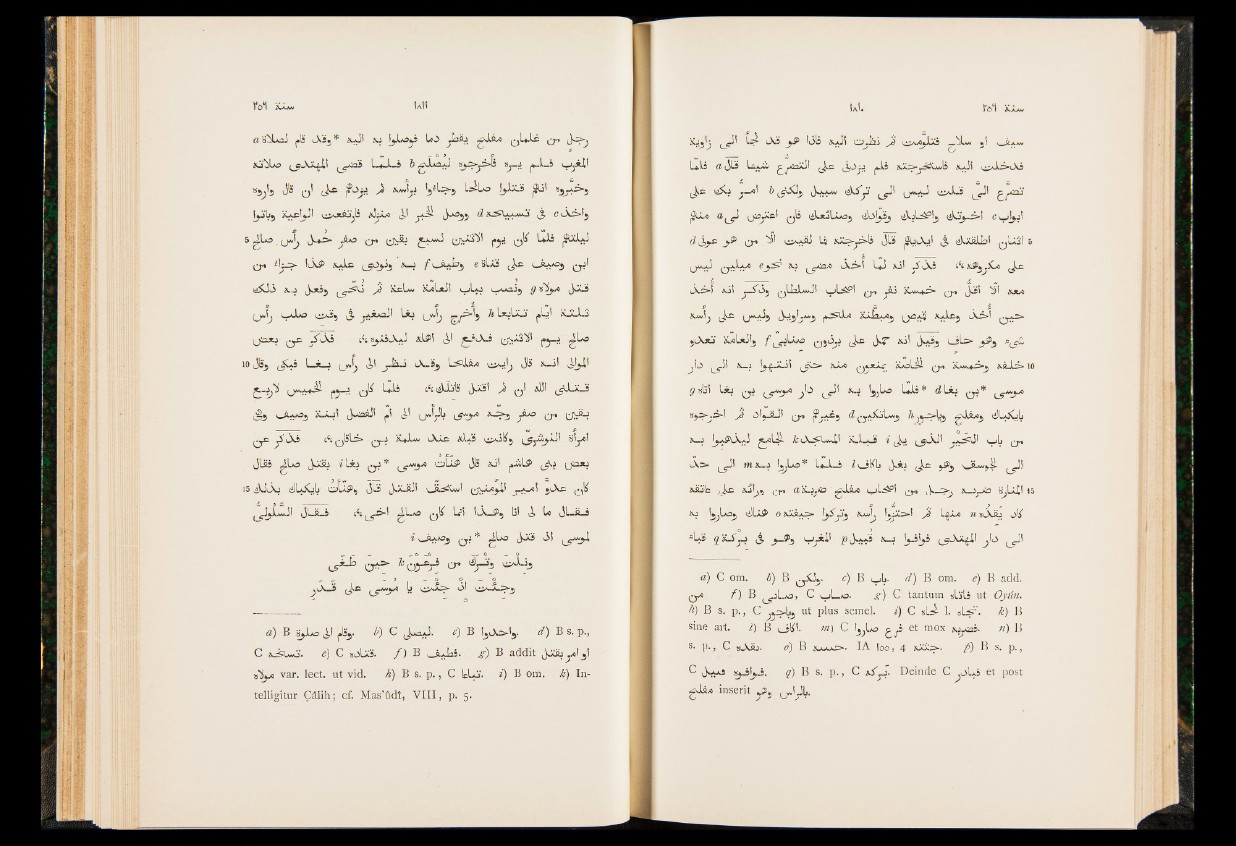 سنة ٢٥٦ ١٨١٠
سيف او سلاح فتلوّمت ثم نظرت اليه فاذا هو قد لجأ الى زاوية
فدخلت اليه فاستخرجته فلم يزدنى على التضرّع شيئا قال a فلما
تضرّع الىّ قلت ليس الى تركك سبيل ولكنى b امرّ بك على
ابواب c اخوتك واصحابك وقوّادك وصنائعك فان اعترض لى a منهم
5 اثنان اطلقتك فى ايديهم قال فاخرجته فما لقيت الّا من هو عونى d
على مكروهه ۞ فذكر انه لمّا أُخذ مضى به نحو e ميلين ليس
معه الّا اقلّ من خمسة نفر من اصحاب السلطان وذكر انه أُخذ
حين أُخذ وعليه قميص ومبطّنة ملحم وسراويل وليس على رأسه
شىء وهو حاف وقيل انه حُمل على برذون صنابىّ f والعامّة تعدو
10 خلفه وخمسة من الخاصّة يمنعون منه حتى انتهوا به الى دار
موسى *بن بغا d *فلمّا صاروا به الى دار موسى بن بغا اتاه g
بايكباك ومفلح وياجور h وساتكين d وغيرهم من القوّاد ثم اخرجوه
من باب الحَيْر الذى يلى i قبلة المسجد k الجامع ليذهبوا به
الى الجوسق وهو على بغل باكاف l فلمّا *صاروا به m الى حدّ
15 المنارة ضربه رجل من اصحاب مفلح ضربة a من ورائه على عاتقه
كاد يقدّه n منها ثم احتزّوا رأسه وتركوا جيفته o هناك وصاروا به
الى دار المهتدى فوافوا به قُبيل p المغرب وهو فى بركة q قباء
a) C om. b) B ولكن. c) B باب. d) B om. e) B add.
من f) B صنابى, C صاب. g) C tantum فاتاه ut Oyún.
h) B s. p., C وياجور ut plus semel. i) C تجاه l. تجاه. k) B
sine art. l) B اكاف. m) C صاروا فرع et mox فضربه. n) B
s. p., C بقده. o) B حسه. IA ١٥٥, 4 جثته. p) B s. p.,
C فوافوه قبيل. q) B s. p., C تركه. Deinde C et post
مفلح inserit وهو بالراس.
سنة ٢٥٦ ١٨١١
رجل من غلمان مفلح يقطر دما فوصلوا به اليه *وقد قام لصلاة a
المغرب فلم يره فاخرجوه ليُصلَح b فلمّا قضى المهتدى صلاته
وخبّروه انهم قتلوا صالحا وجاءوا برأسه لم يزدهم على ان قال واروه
واخذ c فى تسبيحه d ووصل الخبر الى منزله فارتفعت الواعية وباتوا
5 ليلتهم فلمّا كان يوم الاثنين لسبع بقين من صفر حمل رأس صالح
ابن وصيف على قناة e وطيف f به ونودى عليه هذا جزاء من
قتل مولاه g ونُصب بباب العامّة ساعة ثم نُحّى وفعل به ذلك
ثلثة ايّام تتابعا h واخرج رأس بغا الصغير فى وقت صلب رأس
صالح يوم الاثنين فدفع الى اهله ليدفنوه ۞ فذكر عن بعض
10 الموالى انه قال رايت مفلحا وقد نظر الى رأس بغا فبكى وقال
قتلنى الله ان لم اقتل قاتلك ۞ فلمّا كان يوم الخميس لاربع
بقين من صفر وجّه موسى بالرأس الى امّ الفضل ابنة وصيف وهى
امرأة النوشرىّ وكانت قبله عند سلمة بن خاقان ۞ فذكر عن
بعض بنى هاشم انه قال هنّأت موسى *بن بغا i بقتل صالح فقال
15 كان عدوّ امير المؤمنين استحقّ القتل قال وهنّأت بايكباك بذلك
فقال ما لى انا وهذا انما كان صالح اخى ۞ فقال السَّلُولىّ
لموسى اذ قتل صالح *بن وصيف i
ونِلْتَ وِتْرَك من فِرْعَوْنَ k حينَ طَغَى
وجِئْتَ اذْ جِئْتَ يا مُوسَى على قَدَرِ
a) B وقام الى صلوة. b) C ليصلى. c) B واحدوا. d) B s. p.,
C تسبحه. e) C قتاده. f) B فطيف. g) B addit او امر بقتل
مولاه var. lect. ut vid. h) B s. p., C تباعا. i) B om. k) In-
telligitur Çâlih; cf. Mas'ûdî, VIII, p. 5.